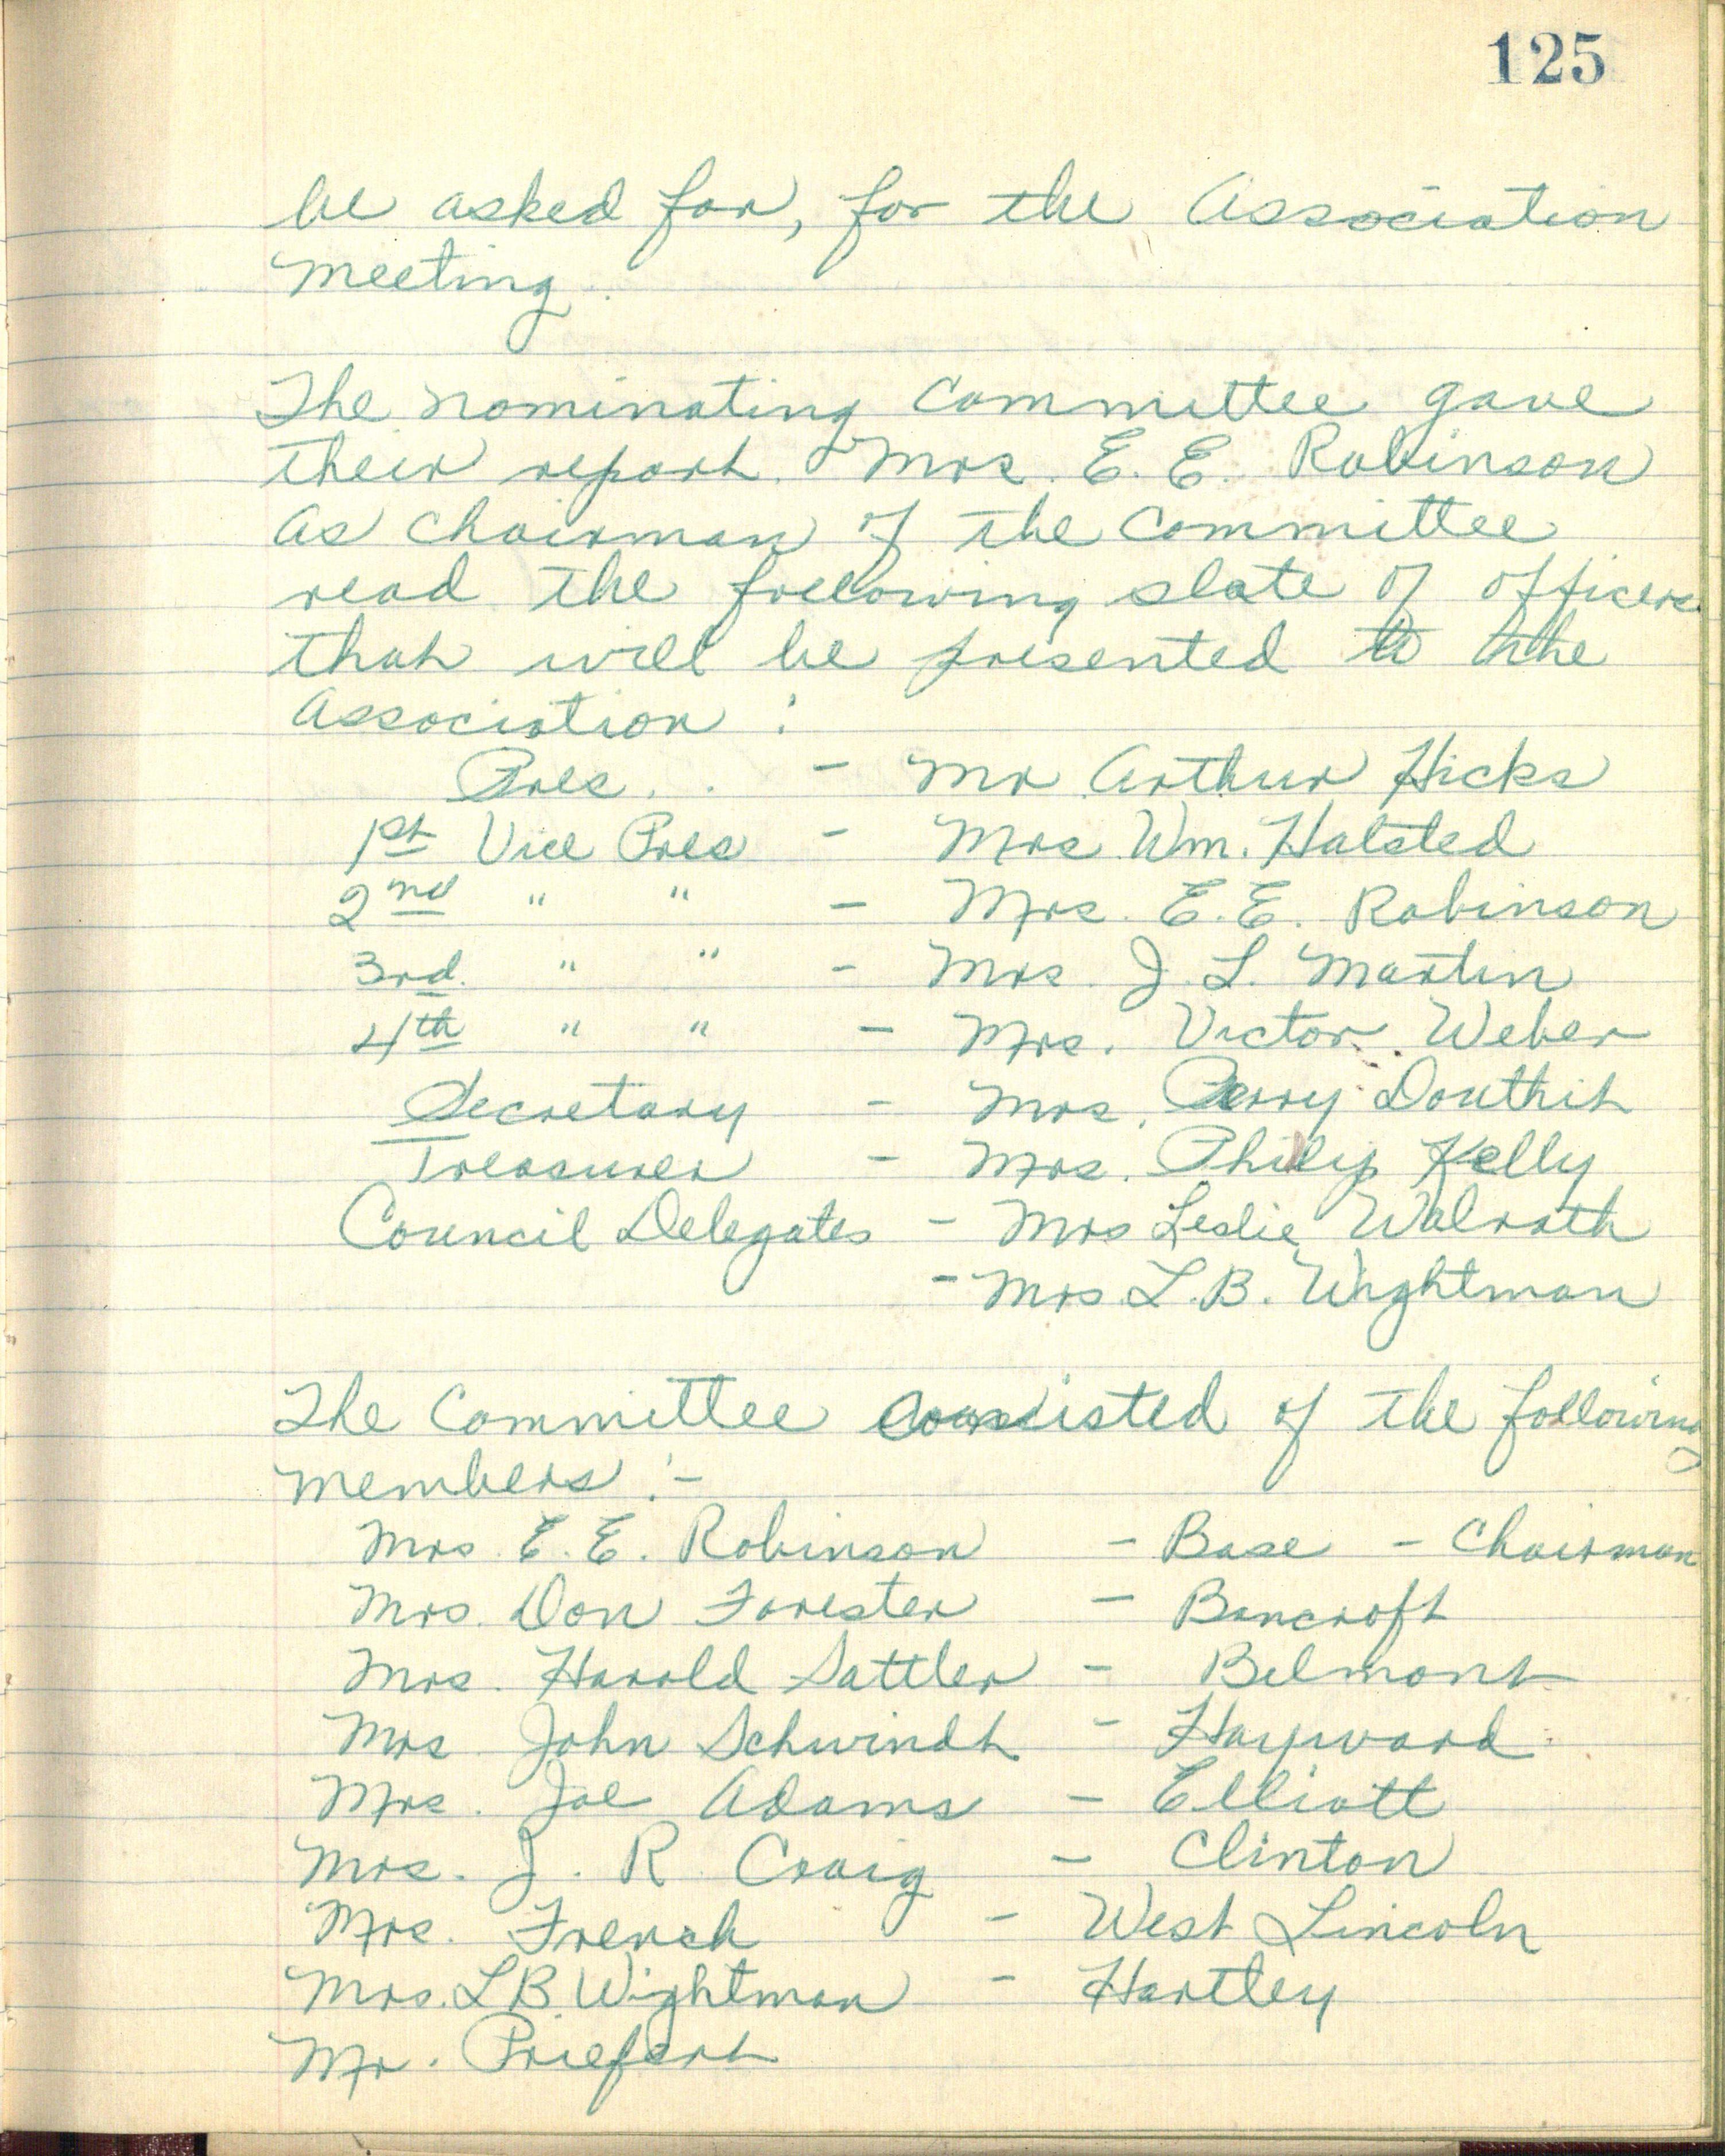 125
be asked for, for the Association
meeting.
The nominating committee gave
their report. Mrs. E. E. Robinson
as chairman of the committee
read the following slate of officers
that will be presented to the
Association :
Pres. . - Mr Arthur Hicks
1st Vice Pres - Mrs Wm. Halsted
2nd " " - Mrs. E. E. Robinson
3rd. " " - Mrs. J. L. Martin
4th " " - Mrs. Victor Weber
Secretary - Mrs. Perry Douthit
Treasurer - Mrs. Philip Kelly
Council Delegates - Mrs Leslie Walrath
- Mrs. L. B. Wightman
The Committee consisted of the following
members :-
Mrs. E. E. Robinson - Base - Chairman
Mrs. Don Forester - Bancroft
Mrs. Harold Sattler - Belmont
Mrs John Schwindt - Hayward
Mrs. Joe Adams - Elliott
Mrs. J. R. Craig - Clinton
Mrs. French - West Lincoln
Mrs. L B Wightman - Hartley
Mr. Priefert